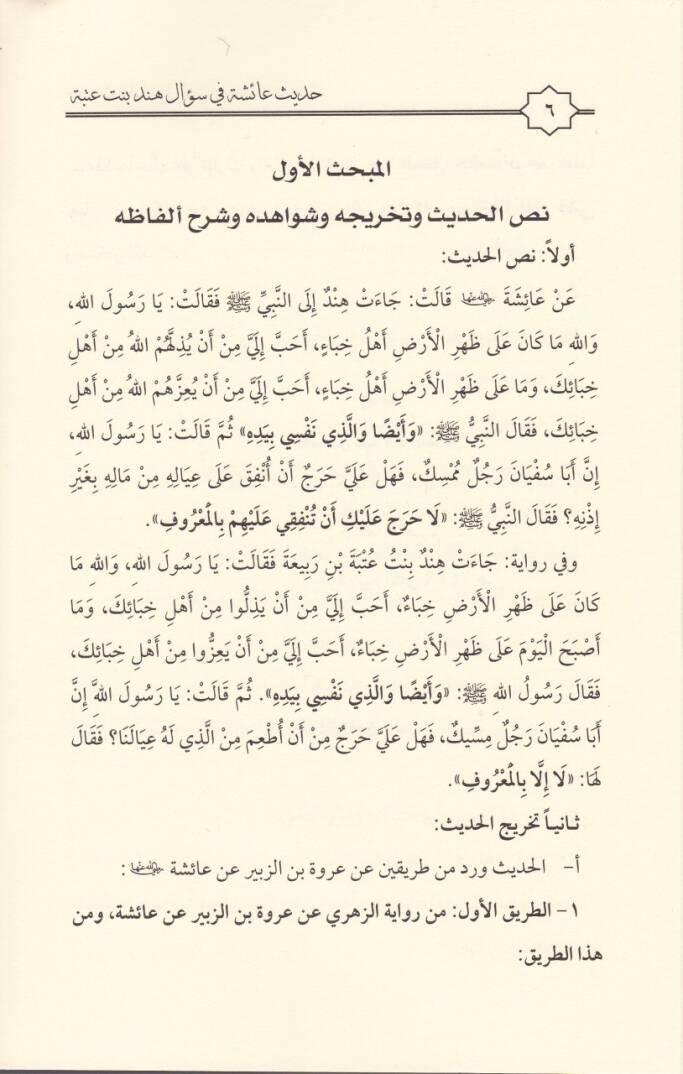 حديث عائشة في سؤال هند بنت عتبة
٦
المبحث الأول
نص الحديث وتخريجه وشواهده وشرح ألفاظه
أولاً: نص الحديث:
عَنْ عَائِشَةَ رضي الله عنها قَالَتْ: جَاءَتْ هِنْدٌ إِلَى النَّبِيِّ ﷺ فَقَالَتْ: يَا رَسُولَ اللهِ،
وَاللهِ مَا كَانَ عَلَى ظَهْرِ الْأَرْضِ أَهْلُ خِبَاءٍ، أَحَبَّ إِلَيَّ مِنْ أَنْ يُذِلَّهُمْ اللهُ مِنْ أَهْلِ
خِبَائِكَ، وَمَا عَلَى ظَهْرِ الْأَرْضِ أَهْلُ خِبَاءٍ، أَحَبَّ إِلَيَّ مِنْ أَنْ يُعِزَّهُمْ اللهُ مِنْ أَهْلِ
خِبَائِكَ، فَقَالَ النَّبِيُّ ﷺ: «وَأَيْضًا وَالَّذِي نَفْسِي بِيَدِهِ» ثُمَّ قَالَتْ: يَا رَسُولَ اللهِ،
إِنَّ أَبَا سُفْيَانَ رَجُلٌ مُمْسِكٌ، فَهَلْ عَلَيَّ حَرَجٌ أَنْ أُنْفِقَ عَلَى عِيَالِهِ مِنْ مَالِهِ بِغَيْرِ
إِذْنِهِ؟ فَقَالَ النَّبِيُّ ﷺ: «لَا حَرَجَ عَلَيْكِ أَنْ تُنْفِقِي عَلَيْهِمْ بِالْمَعْرُوفِ».
وفي رواية: جَاءَتْ هِنْدٌ بِنْتُ عُتْبَةَ بْنِ رَبِيعَةَ فَقَالَتْ: يَا رَسُولَ اللهِ، وَاللهِ مَا
كَانَ عَلَى ظَهْرِ الْأَرْضِ خِبَاءٌ، أَحَبَّ إِلَيَّ مِنْ أَنْ يَذِلُّوا مِنْ أَهْلِ خِبَائِكَ، وَمَا
أَصْبَحَ الْيَوْمَ عَلَى ظَهْرِ الْأَرْضِ خِبَاءٌ، أَحَبَّ إِلَيَّ مِنْ أَنْ يَعِزُّوا مِنْ أَهْلِ خِبَائِكَ،
فَقَالَ رَسُولُ اللهِ ﷺ: «وَأَيْضًا وَالَّذِي نَفْسِي بِيَدِهِ». ثُمَّ قَالَتْ: يَا رَسُولَ اللهِ إِنَّ
أَبَا سُفْيَانَ رَجُلٌ مِسِّيكٌ، فَهَلْ عَلَيَّ حَرَجٌ مِنْ أَنْ أُطْعِمَ مِنْ الَّذِي لَهُ عِيَالَنَا؟ فَقَالَ
لَهَا: «لَا إِلَّا بِالْمَعْرُوفِ».
ثانياً تخريج الحديث:
أ- الحديث ورد من طريقين عن عروة بن الزبير عن عائشة رضي الله عنها :
١- الطريق الأول: من رواية الزهري عن عروة بن الزبير عن عائشة، ومن
هذا الطريق: